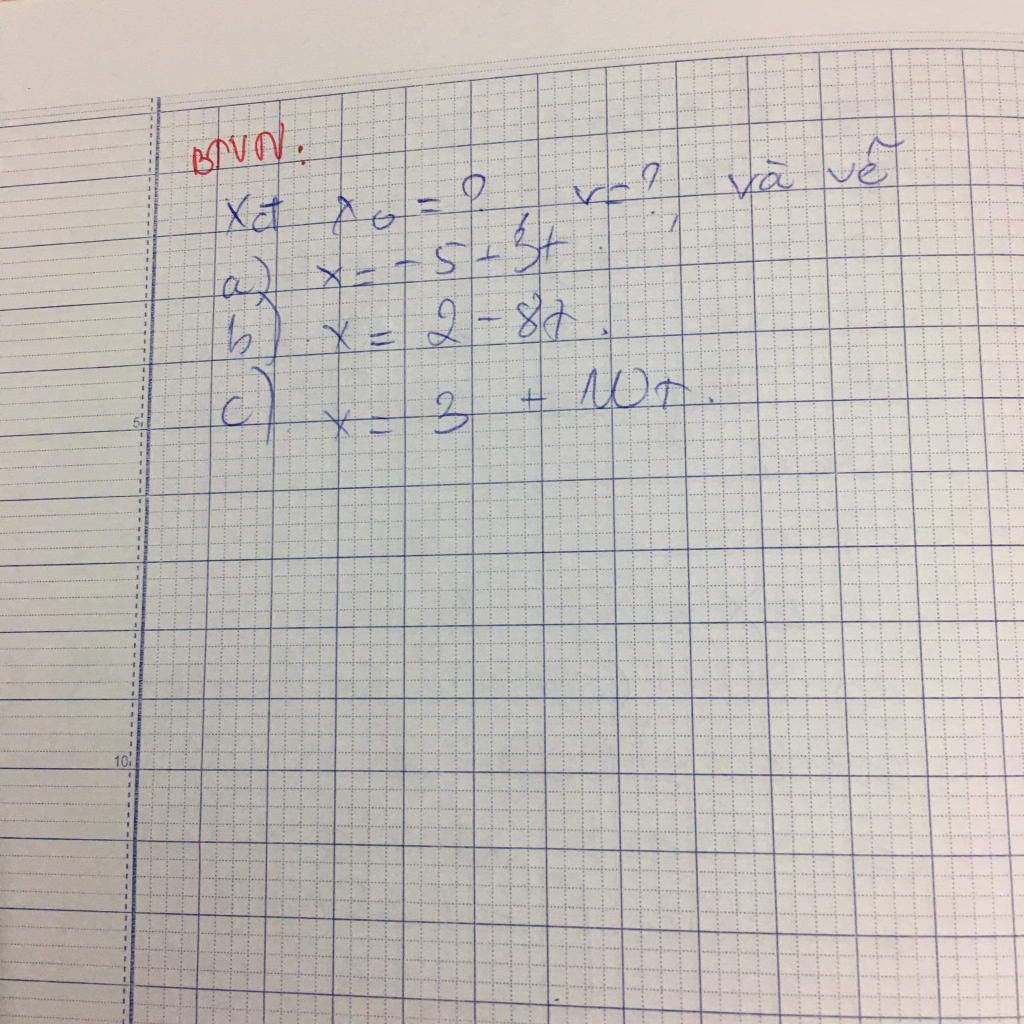 BTVN.
Xđ x₀ = ? v = ?, và vẽ
a) x = -5 + 3t.
b) x = 2 - 8t.
c) x = 3 + 10t.
5
10